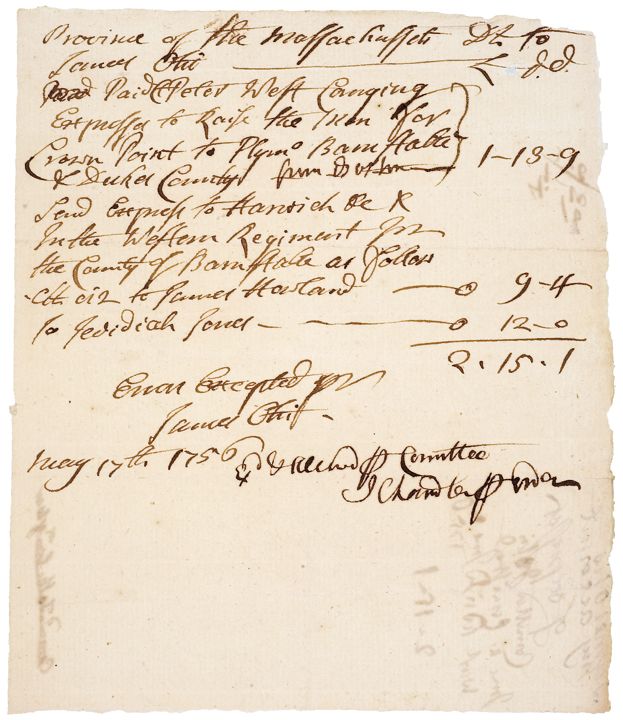 Province of the Massachusetts Dr to
James Otis £ s. d.
Paid Peter West Carrying
Expresses to Raise the men for
Crown Point to Plymo Barnstable
& Dukes County from Boston 1-13-9
Send Express to Harwich &c &
In the Western Regiment for
the County of Barnstable as follows
to James Howland — 0 9-4
To Jedidiah Jones — 0 12-0
2.15.1
Errors Excepted pr
James Otis
May 17th 1756
Committee
J Chandler order